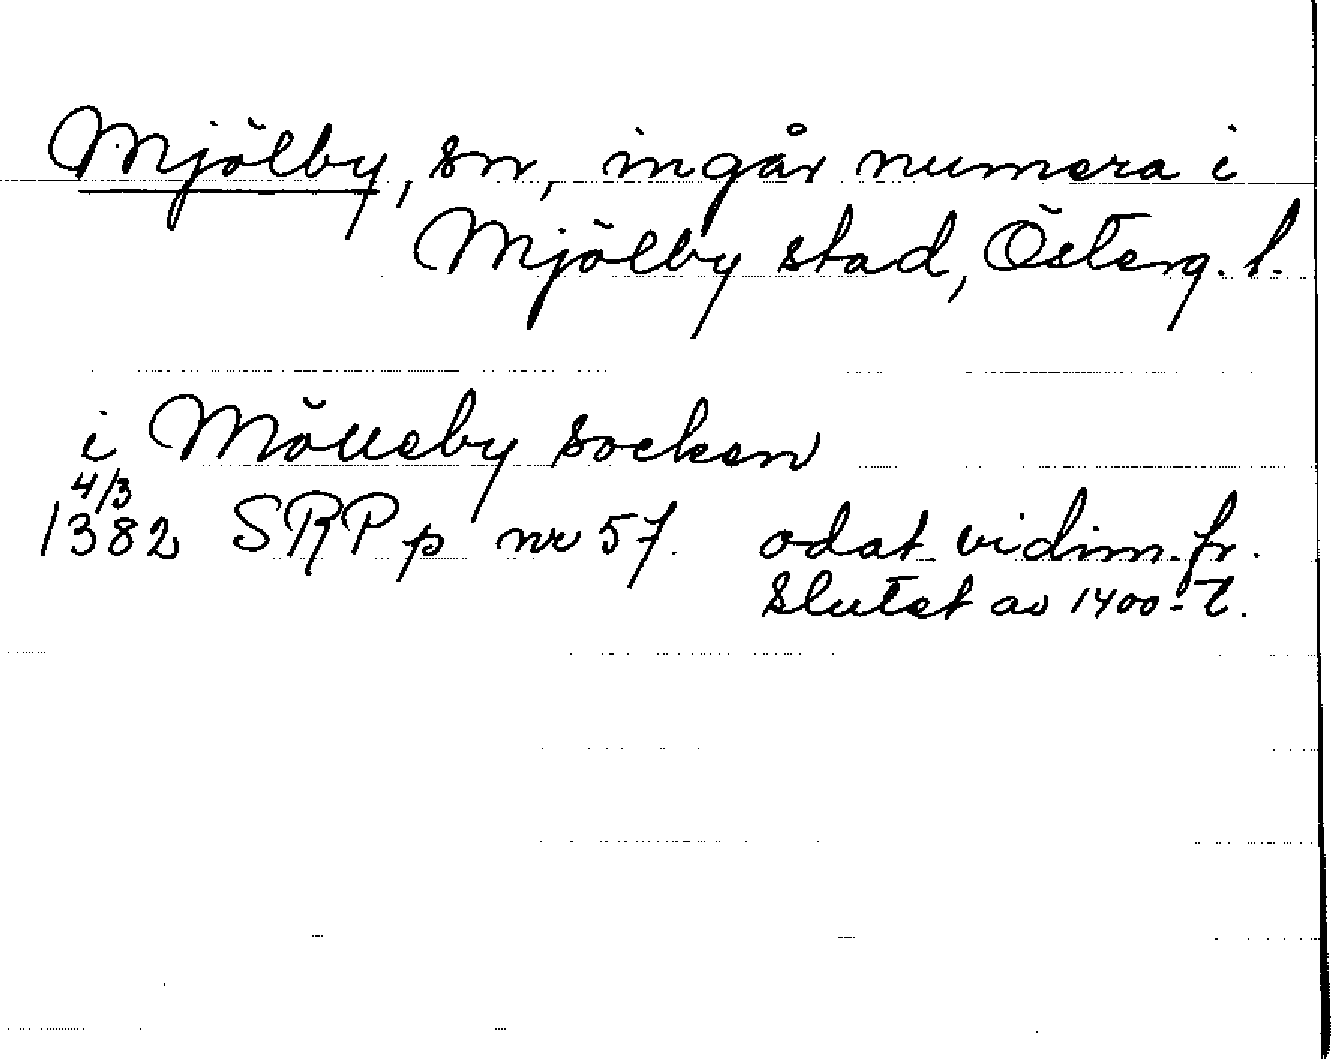 Mjölby, sn, ingår numera i
Mjölby stad, Österg. l.
i Mölleby socken
4/3
1382 SRP p nr 57. odat vidim. fr.
slutet av 1400-t.